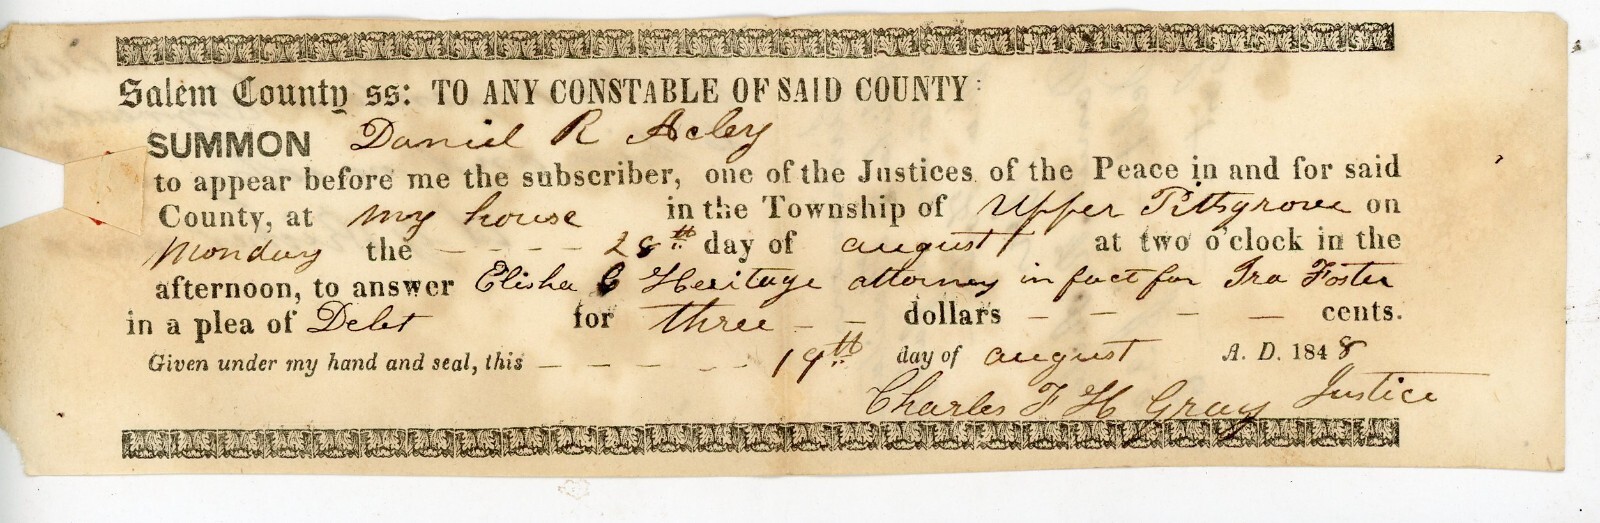 Salem County ss: TO ANY CONSTABLE OF SAID COUNTY:
SUMMON Daniel R Acley
to appear before me the subscriber, one of the Justices of the Peace in and for said
County, at my house in the Township of Upper Pittsgrove on
Monday the - - - - 28th day of august at two o'clock in the
afternoon, to answer Elisha C Heritage attorney in fact for Ira Foster
in a plea of Debt for three - - dollars - - - - cents.
Given under my hand and seal, this - - - - - - 19th day of august A. D. 1848
Charles F H Gray Justice